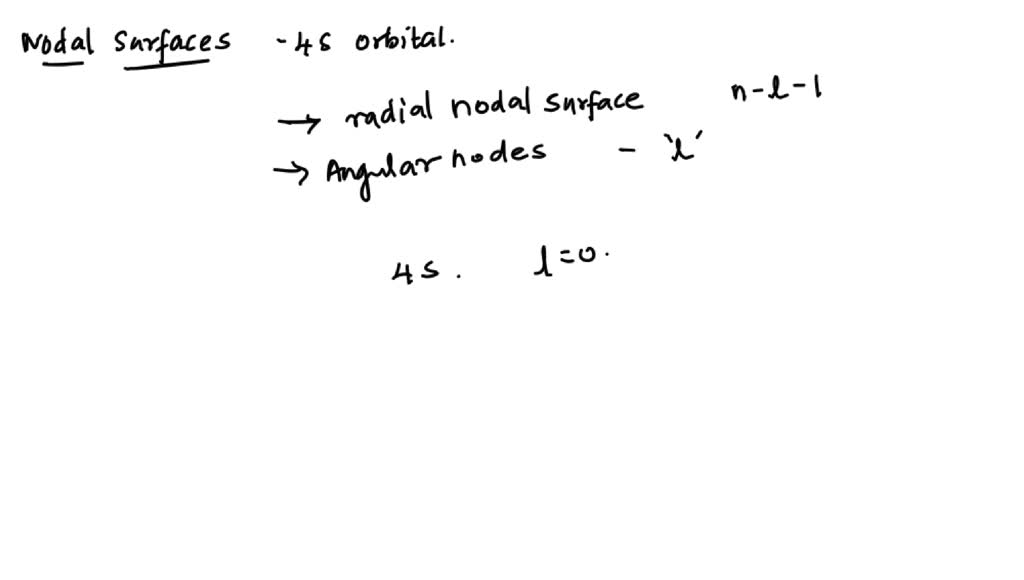 Nodal Surfaces - 4s orbital.
→ radial nodal surface n-l-1
→ Angular nodes - 'l'
4s. l=0.